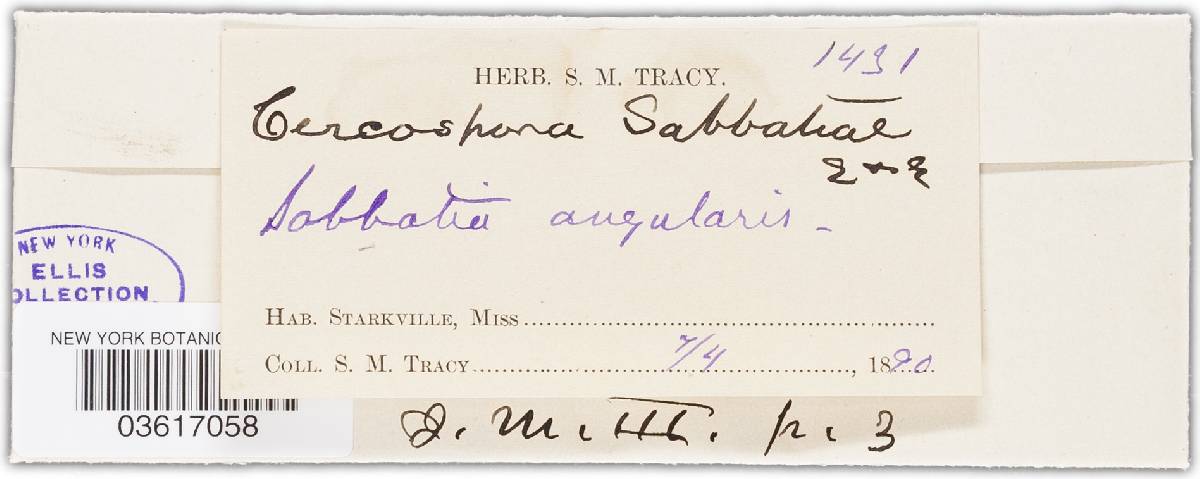 1431
HERB. S. M. TRACY.
Cercospora Sabbatiae
E & E
Sabbatia angularis -
NEW YORK
ELLIS
OLLECTION
HAB. STARKVILLE, MISS
COLL. S. M. TRACY 7/4, 1890
NEW YORK BOTANIC
03617058
J. M. III. p. 3